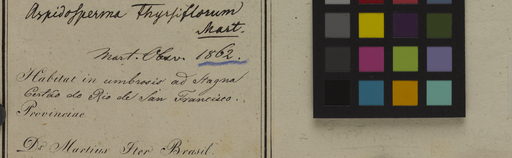 Aspidosperma thyrsiflorum
Mart.
Mart. Obsr. 1862.
Habitat in umbrosis ad Stagna
Certão do Rio de San Francisco.
Provinciae
Dr. Martius Iter Brasil.